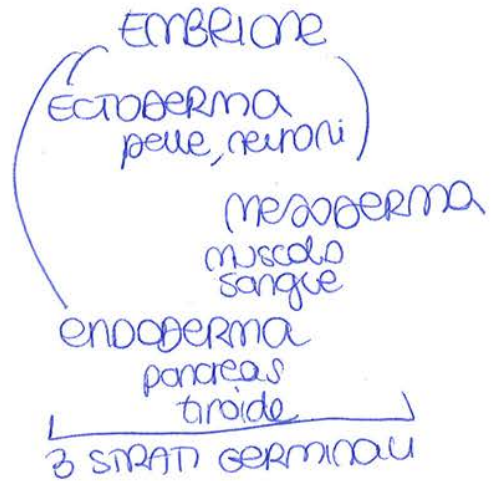 EMBRIONE
ECTODERMA
pelle, neuroni
MESODERMA
muscolo
sangue
ENDODERMA
pancreas
tiroide
3 STRATI GERMINALI